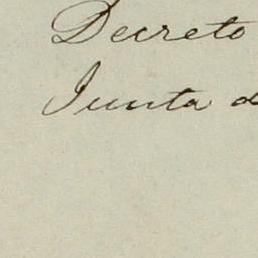 Decreto
Junta d